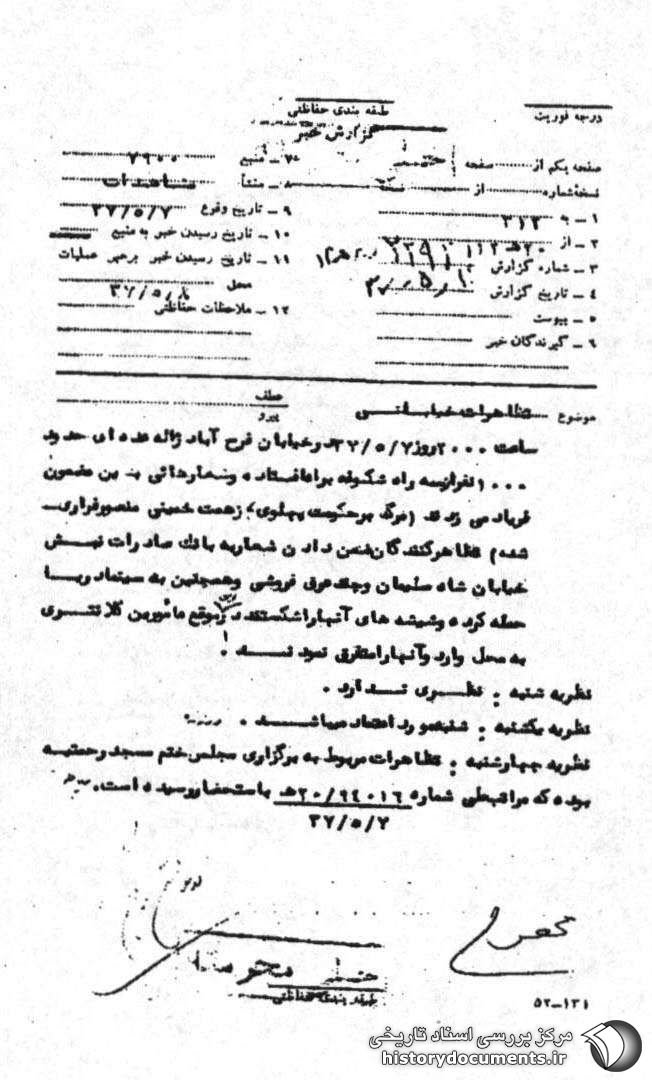 درجه فوریت
طبقه بندی حفاظتی
گزارش خبر
صفحه یکم از صفحه
نسخه شماره از
۱ ـ به ۳۱۲
۲ ـ از ۲۰ ه‍ ۱۲
۳ ـ شماره گزارش
۴ ـ تاریخ گزارش
۵ ـ پیوست
۶ ـ گیرندگان خبر
۷ ـ منبع ۷۹۰۰
۸ ـ منشأ مشاهدات
۹ ـ تاریخ وقوع ۳۷/۵/۷
۱۰ ـ تاریخ رسیدن خبر به منبع
۱۱ ـ تاریخ رسیدن خبر برهبر عملیات
محل ۳۷/۵/۸
۱۲ ـ ملاحظات حفاظتی
موضوع تظاهرات خیابانی
عطف
پیرو
ساعت ۲۰۰۰ روز ۳۷/۵/۷ در خیابان فرح آباد ژاله عده ای حدود
۱۰۰۰ نفر از سه راه شکوفه براه افتاده و شعارهائی بدین مضمون
فریاد می زدند (مرگ بر حکومت پهلوی، زحمت خمینی منصور فراری
شده) تظاهرکنندگان ضمن دادن شعار به بانک صادرات نبش
خیابان شاه سلیمان و چند عرق فروشی و همچنین به سینما دریا
حمله کرده و شیشه های آنها را شکستند در این موقع مأمورین کلانتری
به محل وارد و آنها را متفرق نمودند !
نظریه شنبه : نظری ندارد .
نظریه یکشنبه : شنبه مورد اعتماد میباشد .
نظریه چهارشنبه : تظاهرات مربوط به برگزاری مجلس ختم مسجد رحمتیه
بوده که مراتب طی شماره ۲۰/۶۴۰۱۶ه‍ باستحضار رسیده است.
۳۷/۵/۷
خیلی محرمانه
طبقه بندی حفاظتی
۵۲-۱۳۱
مرکز بررسی اسناد تاریخی
historydocuments.ir